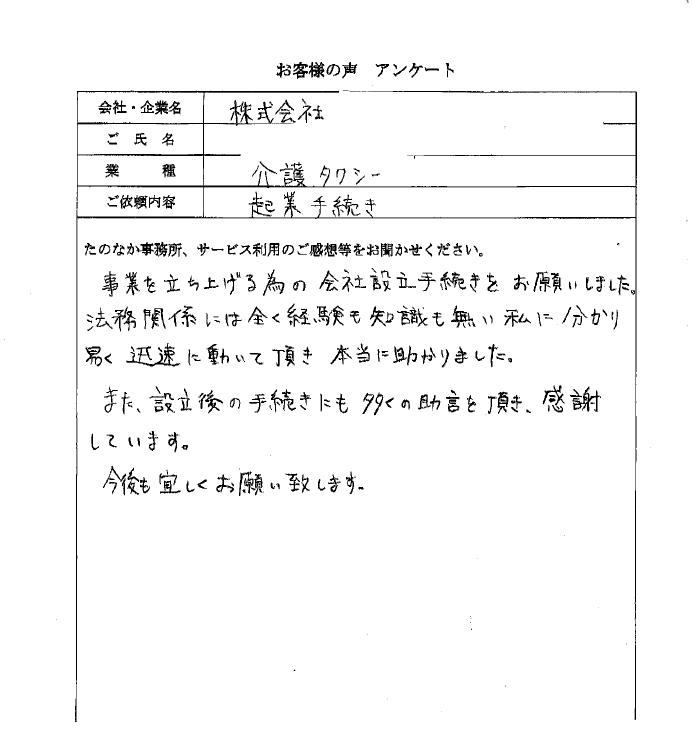 お客様の声 アンケート
会社・企業名 株式会社
ご 氏 名
業 種 介護タクシー
ご依頼内容 起業手続き
たのなか事務所、サービス利用のご感想等をお聞かせください。
事業を立ち上げる為の会社設立手続きをお願いしました。
法務関係には全く経験も知識も無い私に分かり
易く迅速に動いて頂き本当に助かりました。
また、設立後の手続きにも多くの助言を頂き、感謝
しています。
今後も宜しくお願い致します。